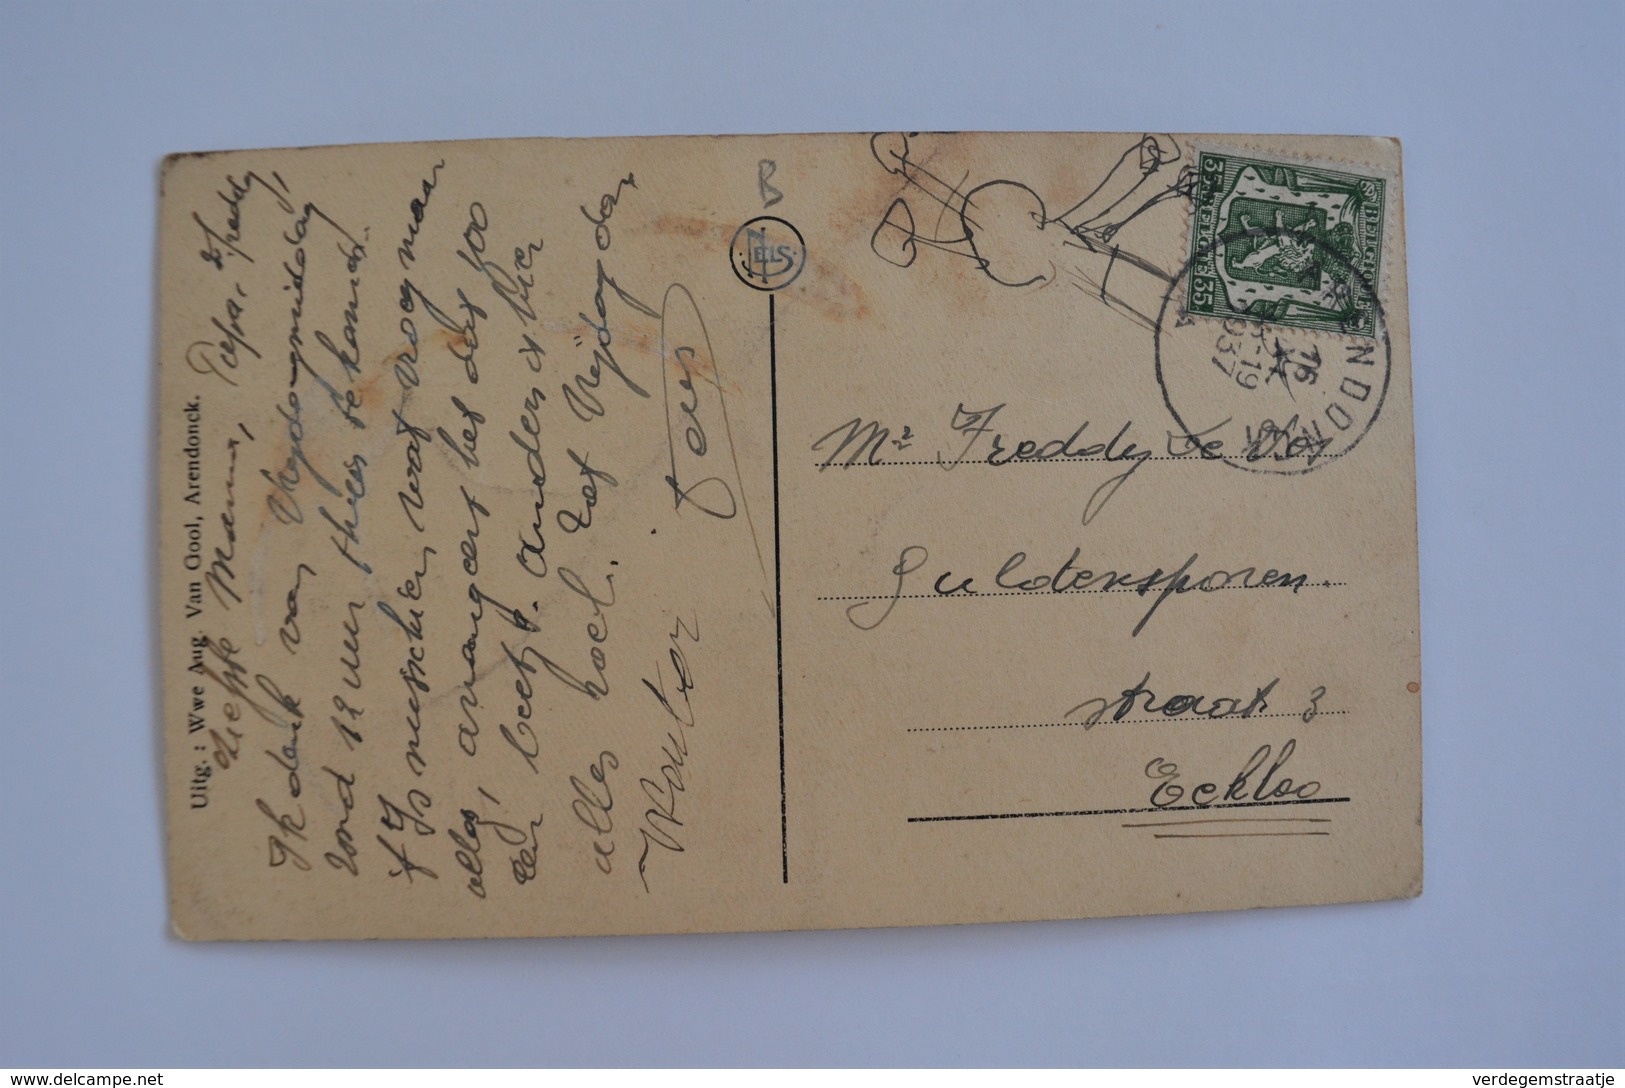 Uitg. : Wwe Aug. Van Gool, Arendonck.
Liefste Mama, Papa, Freddy,
Ik denk van Vrijdagnamiddag
rond 12 uur thuis te komen.
Is misschien wat vroeg maar
alles arrangeert het dat zoo
best. Anders is hier
alles goed. Tot Vrijdag dan
Wouter
NELS
B
BELGIQUE
BELGIE
35
35
ARENDONK
18-19
1937
Mr Freddy De Vos
Guldensporen
straat 3
Eekloo
verdegemstraatje